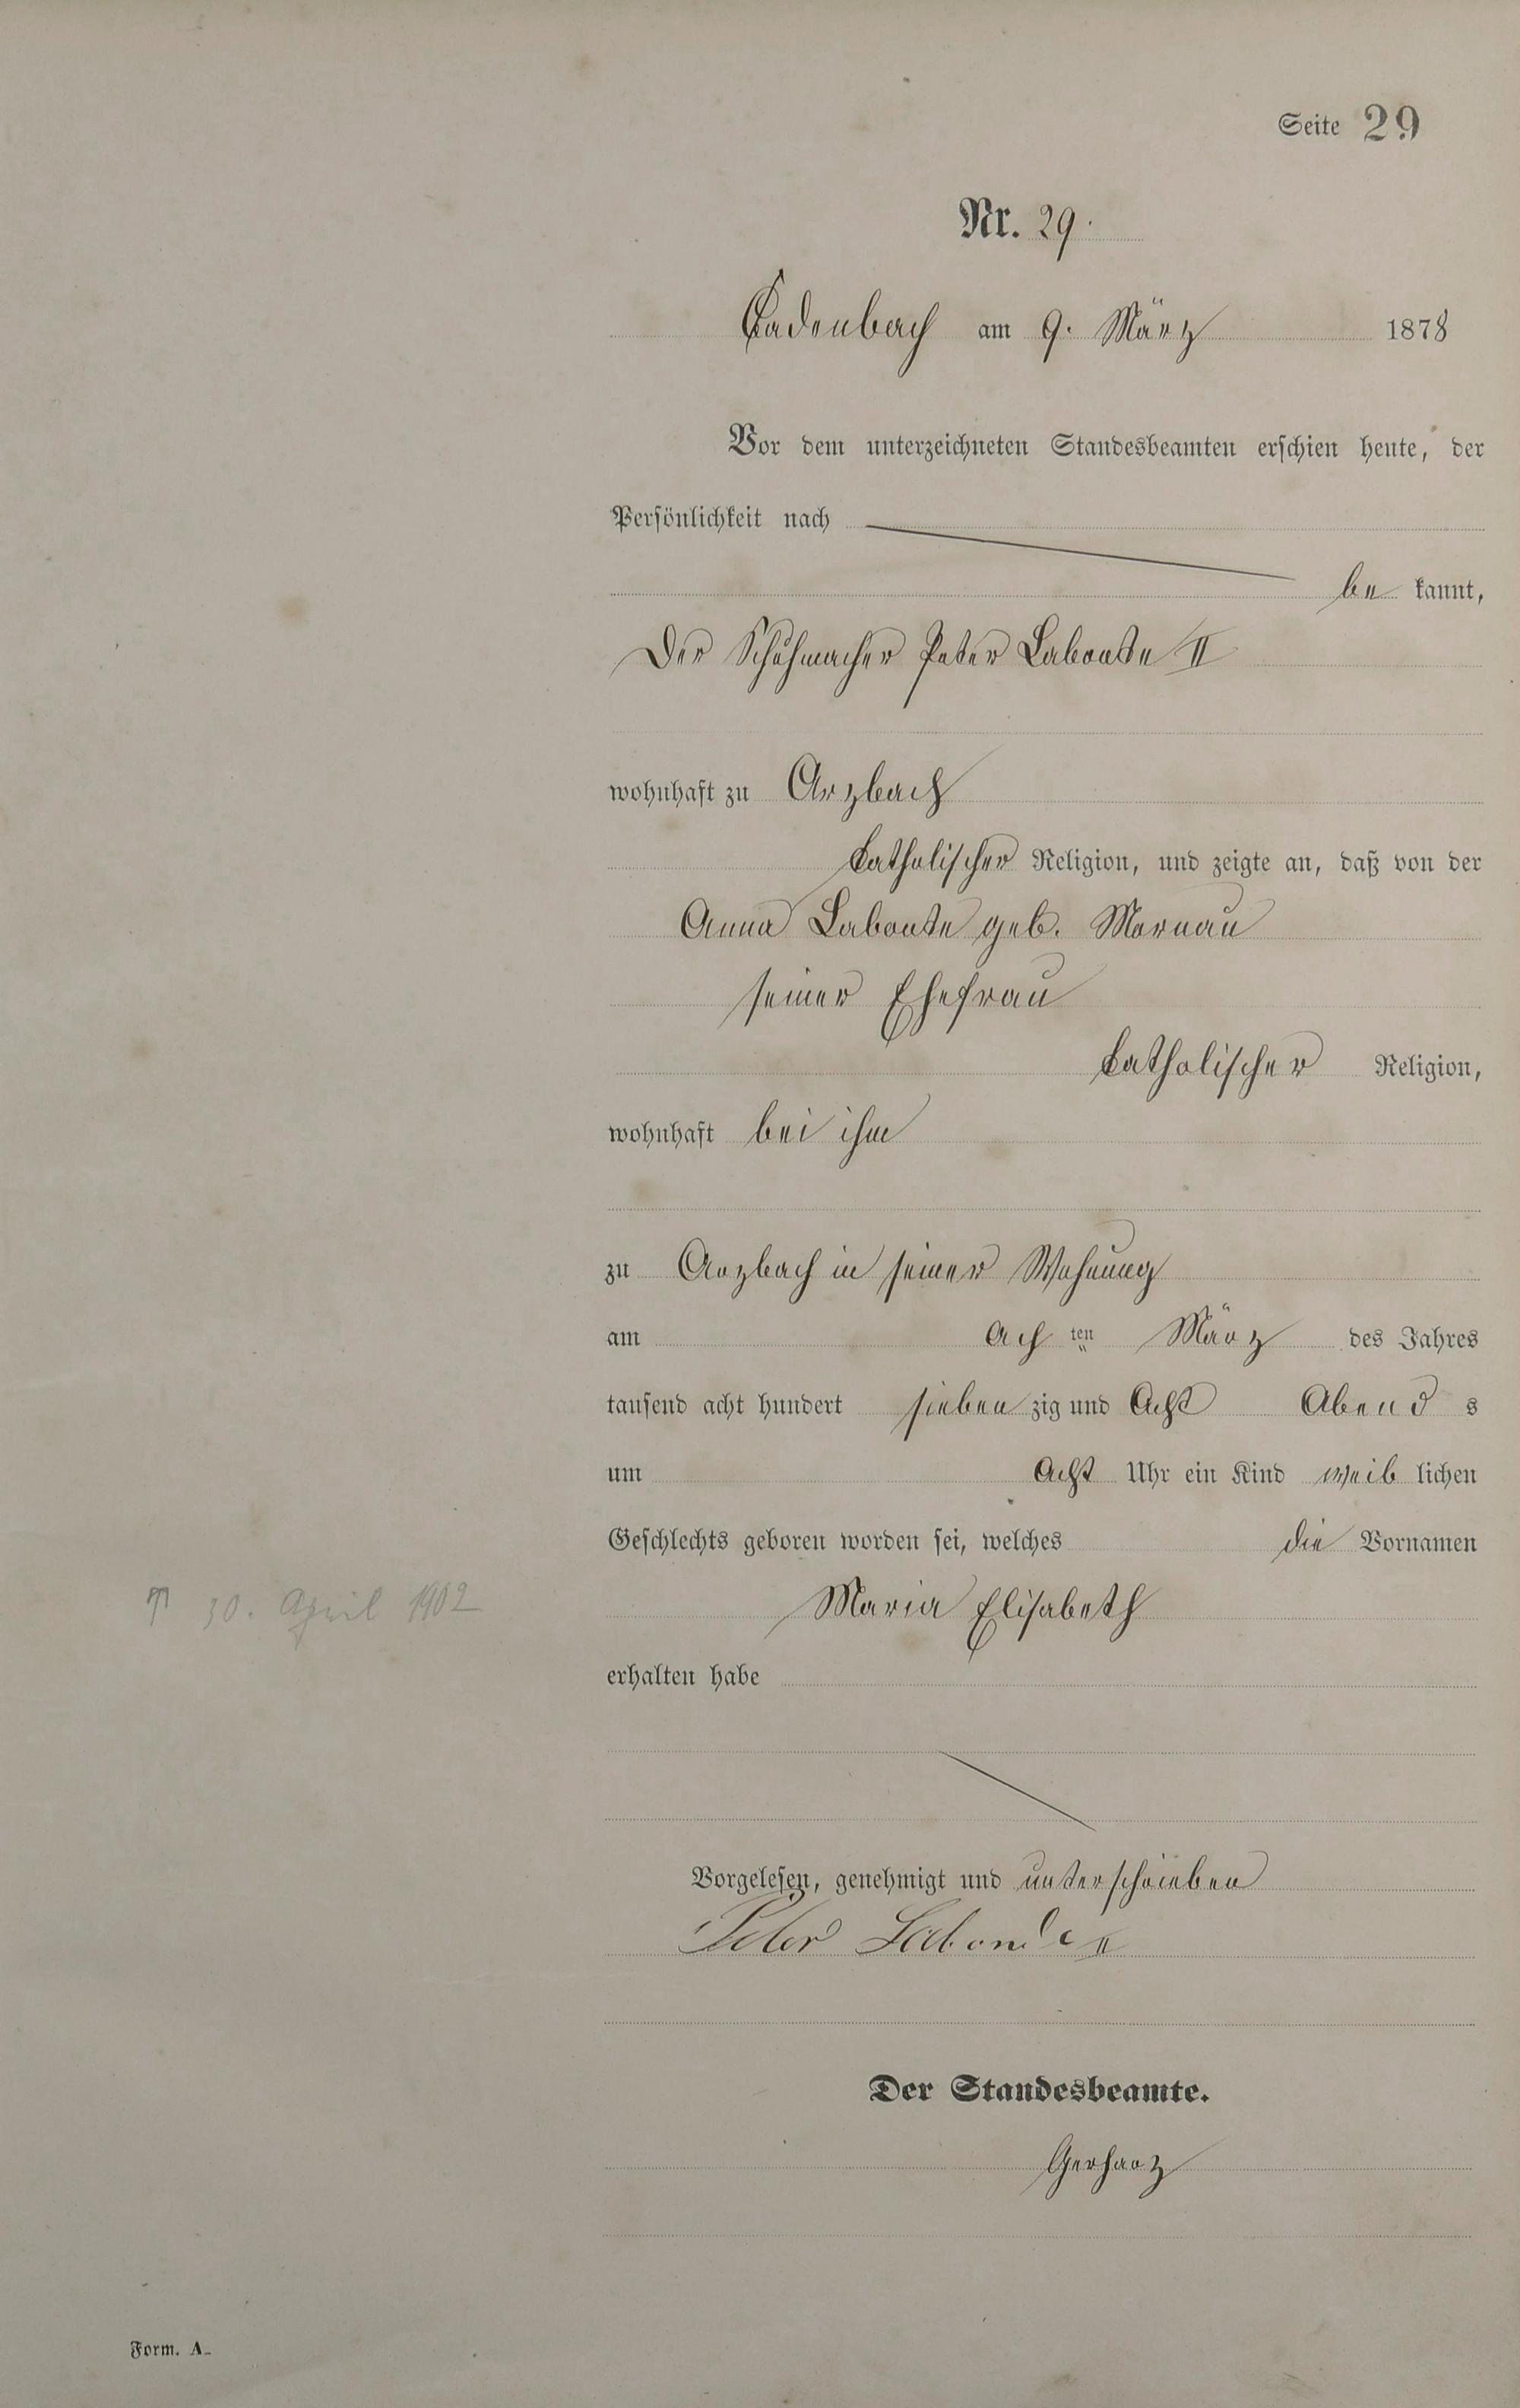 Seite 29
Nr. 29.
Cadenbach am 9. März 1878
Vor dem unterzeichneten Standesbeamten erschien heute, der
Persönlichkeit nach
be kannt,
Der Schuhmacher Peter Labonte II
wohnhaft zu Arzbach
katholischer Religion, und zeigte an, daß von der
Anna Labonte geb. Mornau
seiner Ehefrau
katholischer Religion,
wohnhaft bei ihm
zu Arzbach in seiner Wohnung
am Ach ten März des Jahres
tausend acht hundert sieben zig und Acht Abend s
um Acht Uhr ein Kind weib lichen
Geschlechts geboren worden sei, welches die Vornamen
† 30. April 1902
Maria Elisabeth
erhalten habe
Vorgelesen, genehmigt und unterschrieben
Peter Labonte II
Der Standesbeamte.
Gerharz
Form. A.